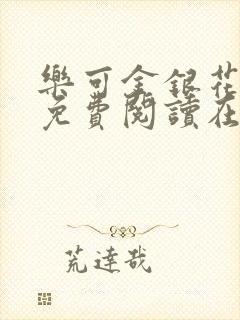 樂可金銀花
免費閱讀在
荒達哉